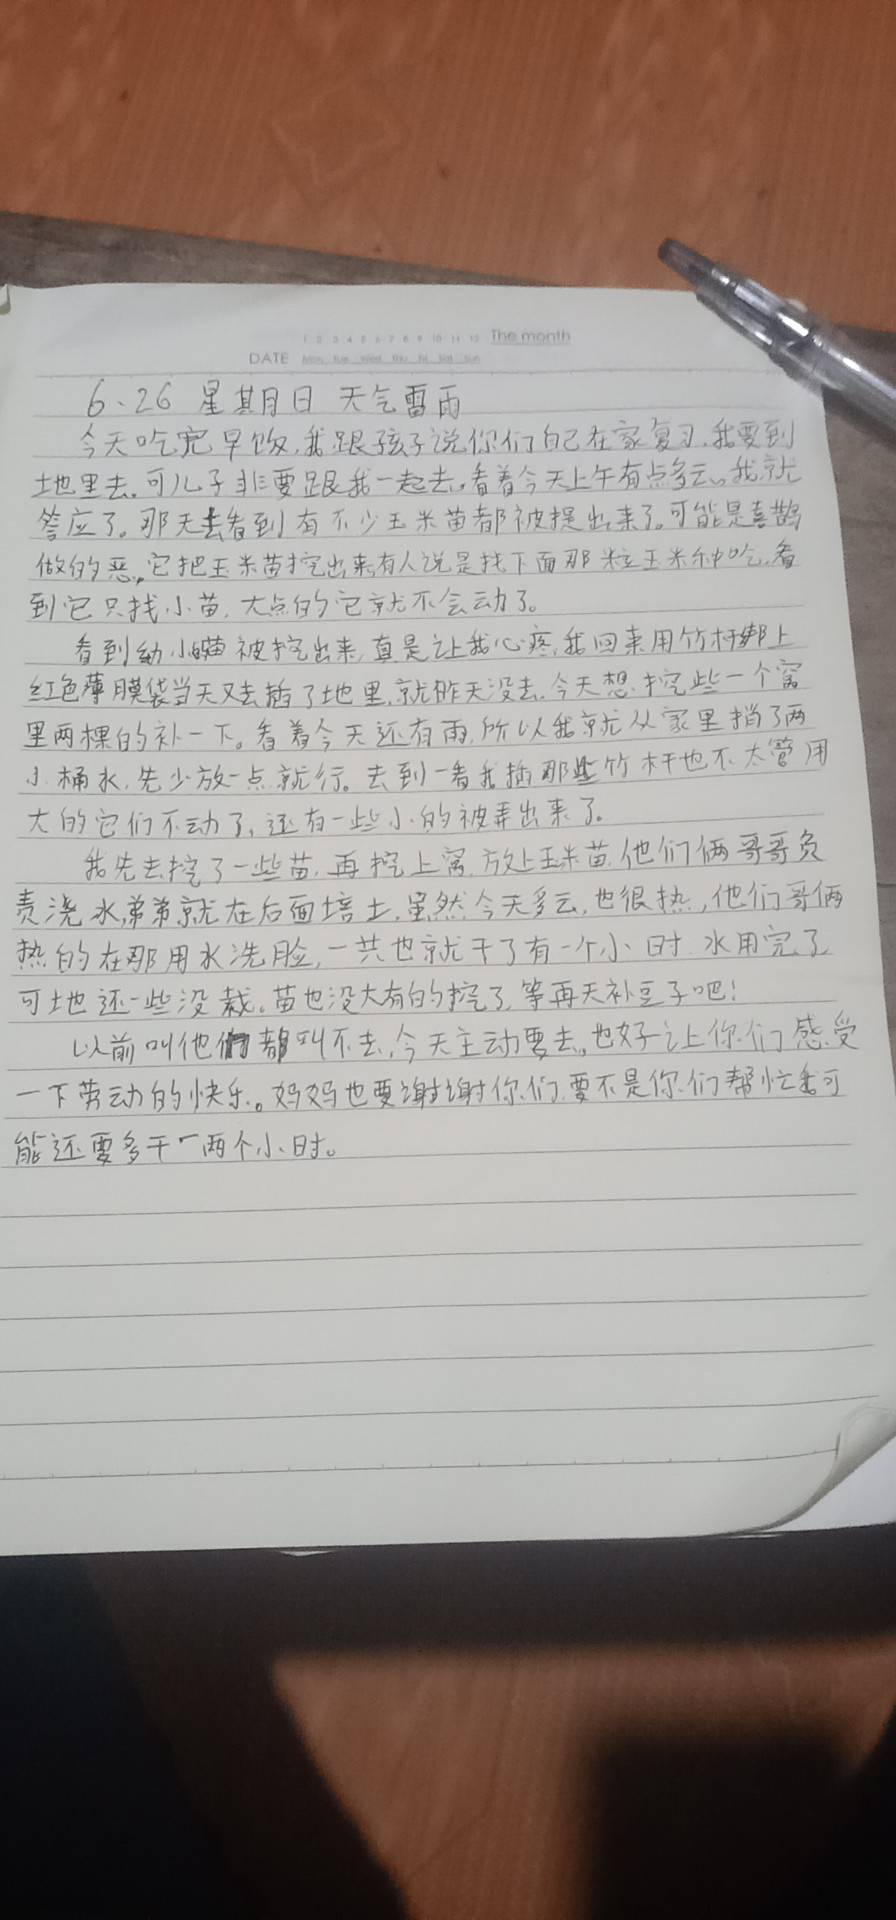 1 2 3 4 5 6 7 8 9 10 11 12 The month
DATE Mon Tue Wed Thu Fri Sat Sun
6、26 星期日 天气雷雨
今天吃完早饭,我跟孩子说你们自己在家复习,我要到
地里去,可儿子非要跟我一起去,看着今天上午有点多云,我就
答应了。那天去看到有不少玉米苗都被提出来了,可能是喜鹊
做的恶,它把玉米苗挖出来,有人说是找下面那粒玉米种吃,看
到它只找小苗,大点的它就不会动了。
看到幼小苗被挖出来,真是让我心疼,我回来用竹杆绑上
红色薄膜袋当天又去插了地里,就昨天没去,今天想挖些一个窝
里两棵的补一下。看着今天还有雨,所以我就从家里捎了两
小桶水,先少放一点就行。去到一看我插那些竹杆也不太管用
大的它们不动了,还有一些小的被弄出来了。
我先去挖了一些苗,再挖上窝,放上玉米苗,他们俩哥哥负
责浇水,弟弟就在后面培土,虽然今天多云,也很热,他们哥俩
热的在那用水洗脸,一共也就干了有一个小时,水用完了
可地还一些没栽。苗也没大有的挖了,等再天补豆子吧!
以前叫他们都叫不去,今天主动要去,也好让你们感受
一下劳动的快乐。妈妈也要谢谢你们,要不是你们帮忙我可
能还要多干一两个小时。